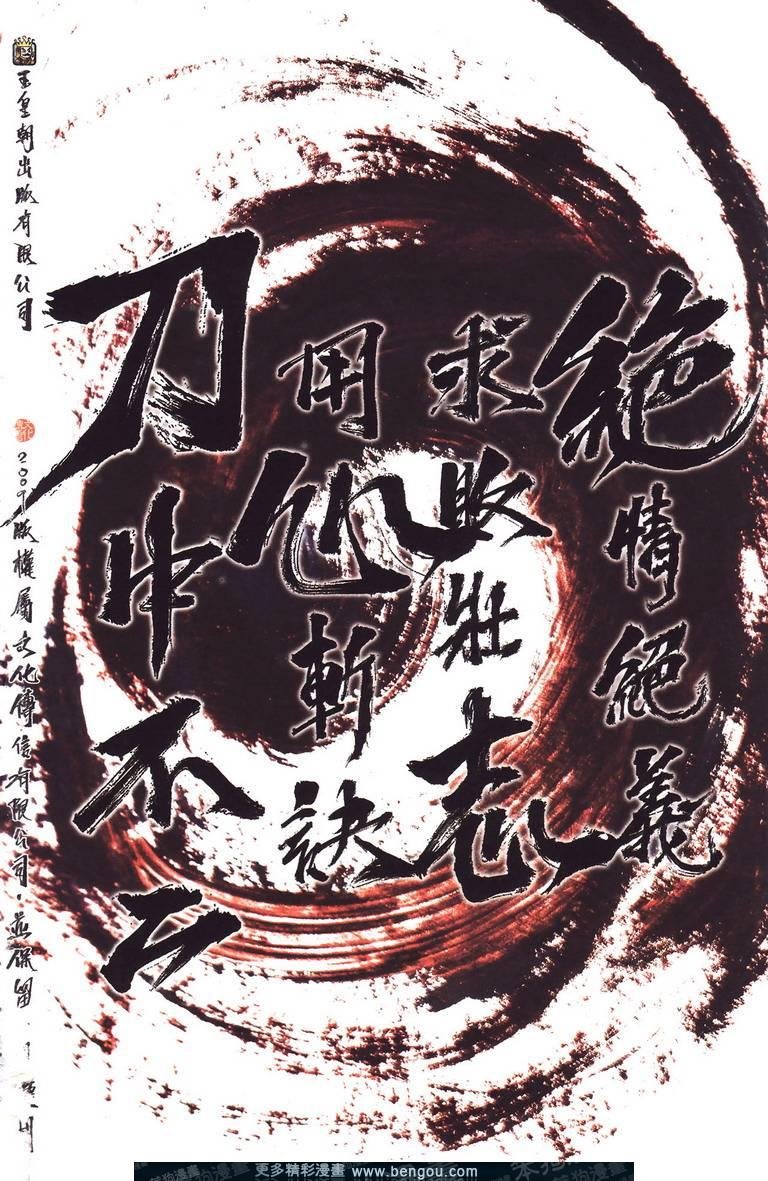 絕情絕義
求敗壯志
用心斬訣
刀中不二
玉皇朝出版有限公司
2009版權屬文化傳信有限公司·並保留
更多精彩漫畫 www.bengou.com